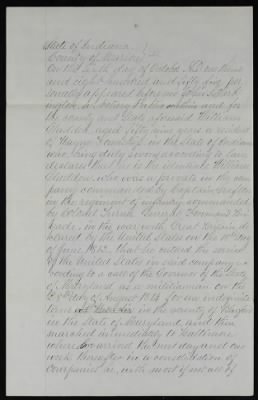 State of Indiana
County of Marion
On this tenth day of October A.D. one thous
and eight hundred and fifty five per
sonally appeared before me John
a Notary Public within and for
the county and State aforesaid William
aged fifty nine years a resident
of Wayne Township in the State of Indiana
who being duly sworn according to law
declares that he is the identical William
who was a private in the com
pany commanded by Captain
in the regiment of infantry commanded
by Colonel
in the war with Great Britain de
clared by the United States on the 18th day
of June 1812. That he entered the service
of the United States in said company ac
cording to a call of the Governor of the State
of Maryland as a militiaman on the
day of August 1814 for an indefinite
term in the county of
in the State of Maryland and then
marched immediately to Baltimore
where arrived the next day and one
week thereafter in a consolidation of
companies he, with most if not all of